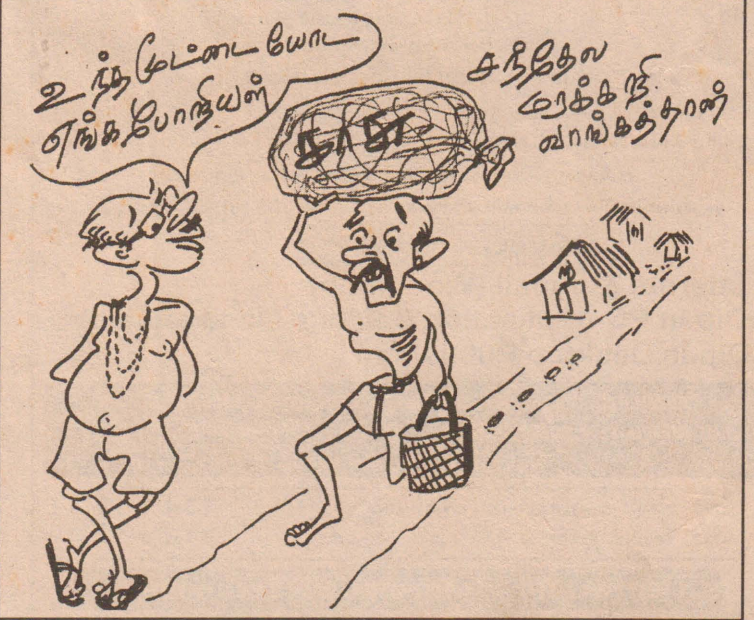 உந்த மூட்டையோட
எங்க போறியள்
காசு
சந்தேல
மரக்கறி
வாங்கத்தான்